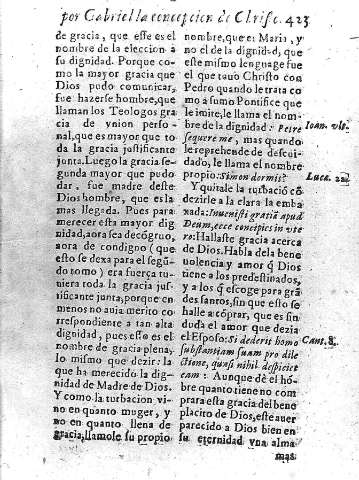 por Gabriel la concepcion de Chrisſo. 423
de gracia, que eſſe es el
nombre de la eleccion a
ſu dignidad. Porque co-
mo la mayor gracia que
Dios pudo comunicar,
fue hazerſe hombre, que
llaman los Teologos gra
cia de vnion perſo-
nal, que es mayor que to
da la gracia juſtificante
junta. Luego la gracia ſe-
gunda mayor que pudo
dar, fue madre deſte
Dios hombre, que es la
mas llegada. Pues para
merecer eſta mayor dig
nidad, aora ſea decõgruo,
aora de condigno (que
eſto ſe dexa para el ſegũ-
do tomo) era fuerça tu-
uiera toda la gracia juſti-
ficante junta, porque en
menos no auia merito co
rreſpondiente a tan alta
dignidad, pues eſto es el
nombre de gracia plena,
lo miſmo que dezir: la
que ha merecido la dig-
nidad de Madre de Dios.
Y como la turbacion vi-
no en quanto muger, y
no en quanto llena de
gracia, llamole ſu propio
nombre, que es Maria, y
no el de la dignidad, que
eſte miſmo lenguage fue
el que tuuo Chriſto con
Pedro quando le trata co
mo a ſumo Pontifice que
le imite, le llama el nom-
bre de la dignidad: Petre
ſequere me, mas quando
le reprehende de deſcui-
dado, le llama el nombre
propio: Simon dormis?
Y quitale la turbació cõ
dezirle a la clara la emba
xada: Inueniſti gratiã apud
Deum, ecce concipies in vte
ro: Hallaſte gracia acerca
de Dios. Habla de la bene
uolencia y amor q̃ Dios
tiene a los predeſtinados,
y a los q̃ eſcoge para grã
des ſantos, ſin que eſto ſe
halle a cõprar, que es ſin
duda el amor que dezia
el Eſpoſo: Si dederit homo
ſubſtantiam ſuam pro dile
ctione, quaſi nihil deſpiciet
eam: Aunque dè el hõ-
bre quanto tiene no com
pra eſta gracia del bene
placito de Dios, eſte auer
parecido a Dios bien en
ſu eternidad vna alma
mas
Ioan. vlt.
Luca. 22.
Cant. 8.